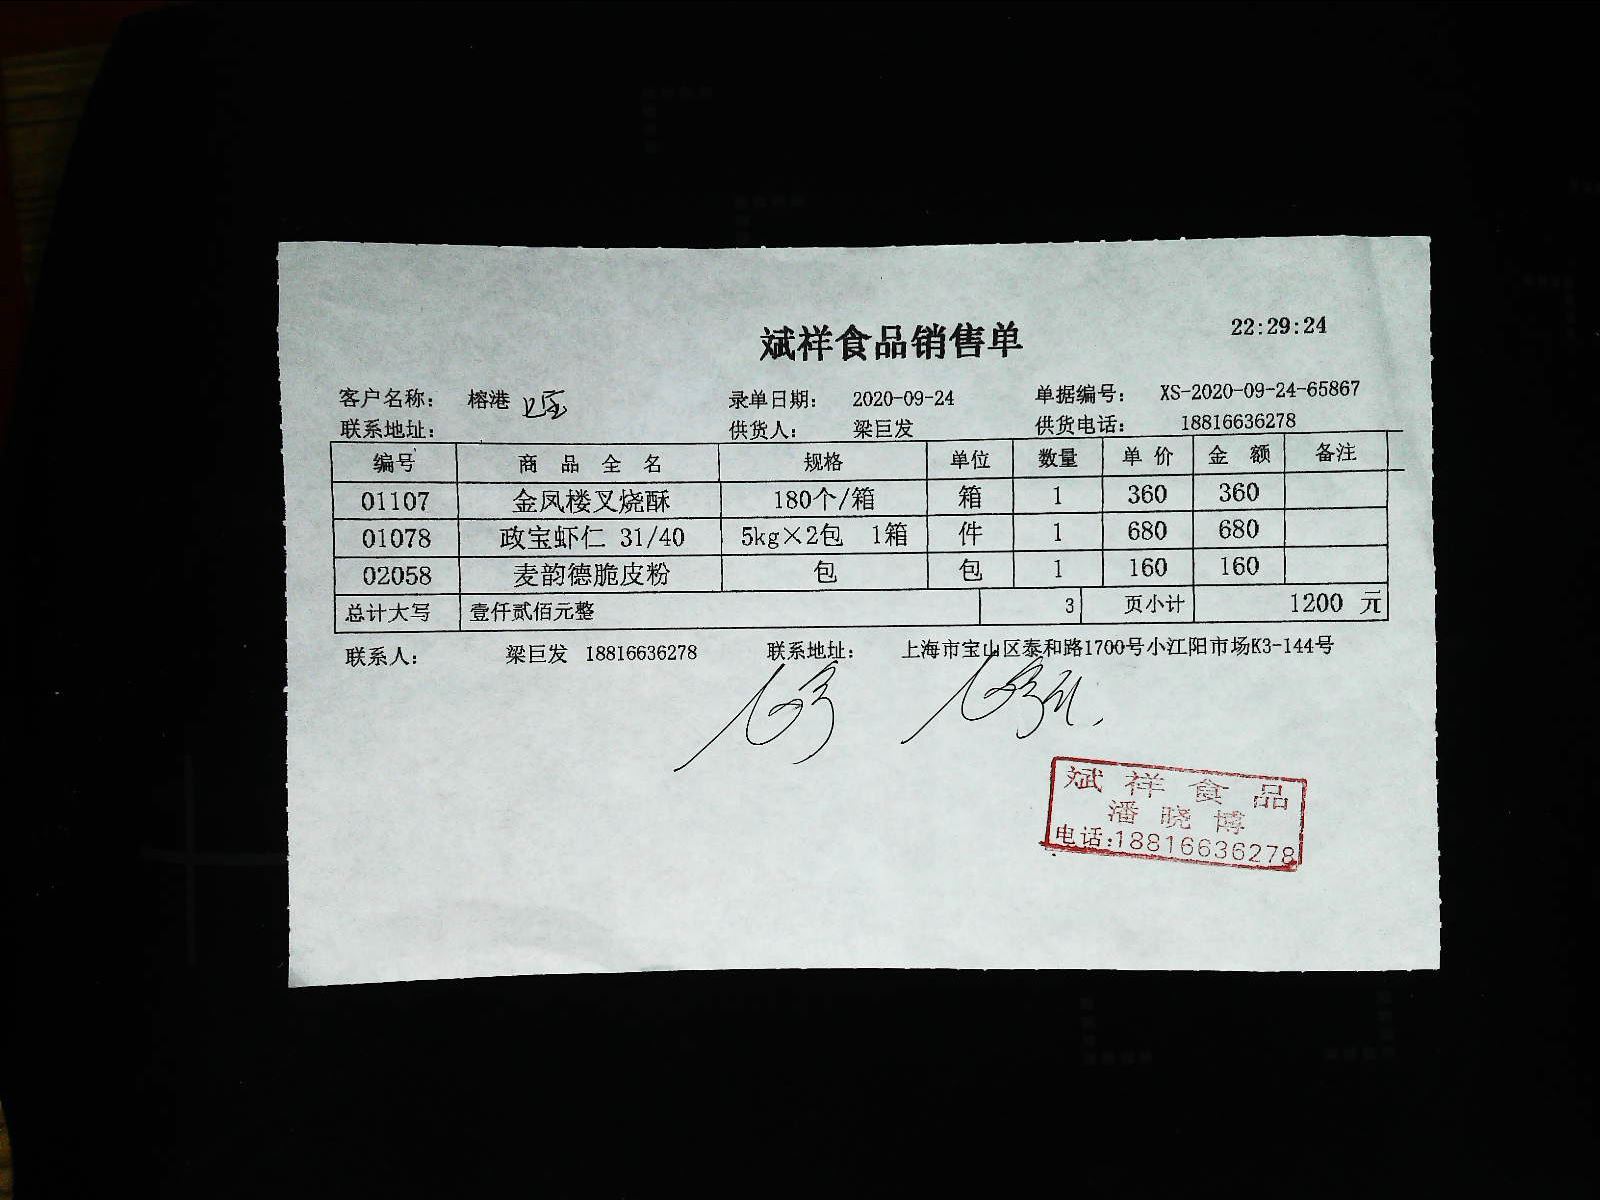 斌祥食品销售单 22:29:24
客户名称： 榕港 录单日期： 2020-09-24 单据编号： XS-2020-09-24-65867
联系地址： 供货人： 梁巨发 供货电话： 18816636278
编号 商品全名 规格 单位 数量 单价 金额 备注
01107 金凤楼叉烧酥 180个/箱 箱 1 360 360
01078 政宝虾仁 31/40 5kg×2包 1箱 件 1 680 680
02058 麦韵德脆皮粉 包 包 1 160 160
总计大写 壹仟贰佰元整 3 页小计 1200 元
联系人： 梁巨发 18816636278 联系地址： 上海市宝山区泰和路1700号小江阳市场K3-144号
斌祥食品
潘晓博
电话:18816636278